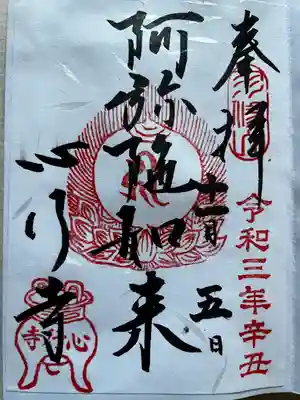 奉拝
令和三年辛丑
十一月
五日
阿弥陀如来
心行寺
心行寺